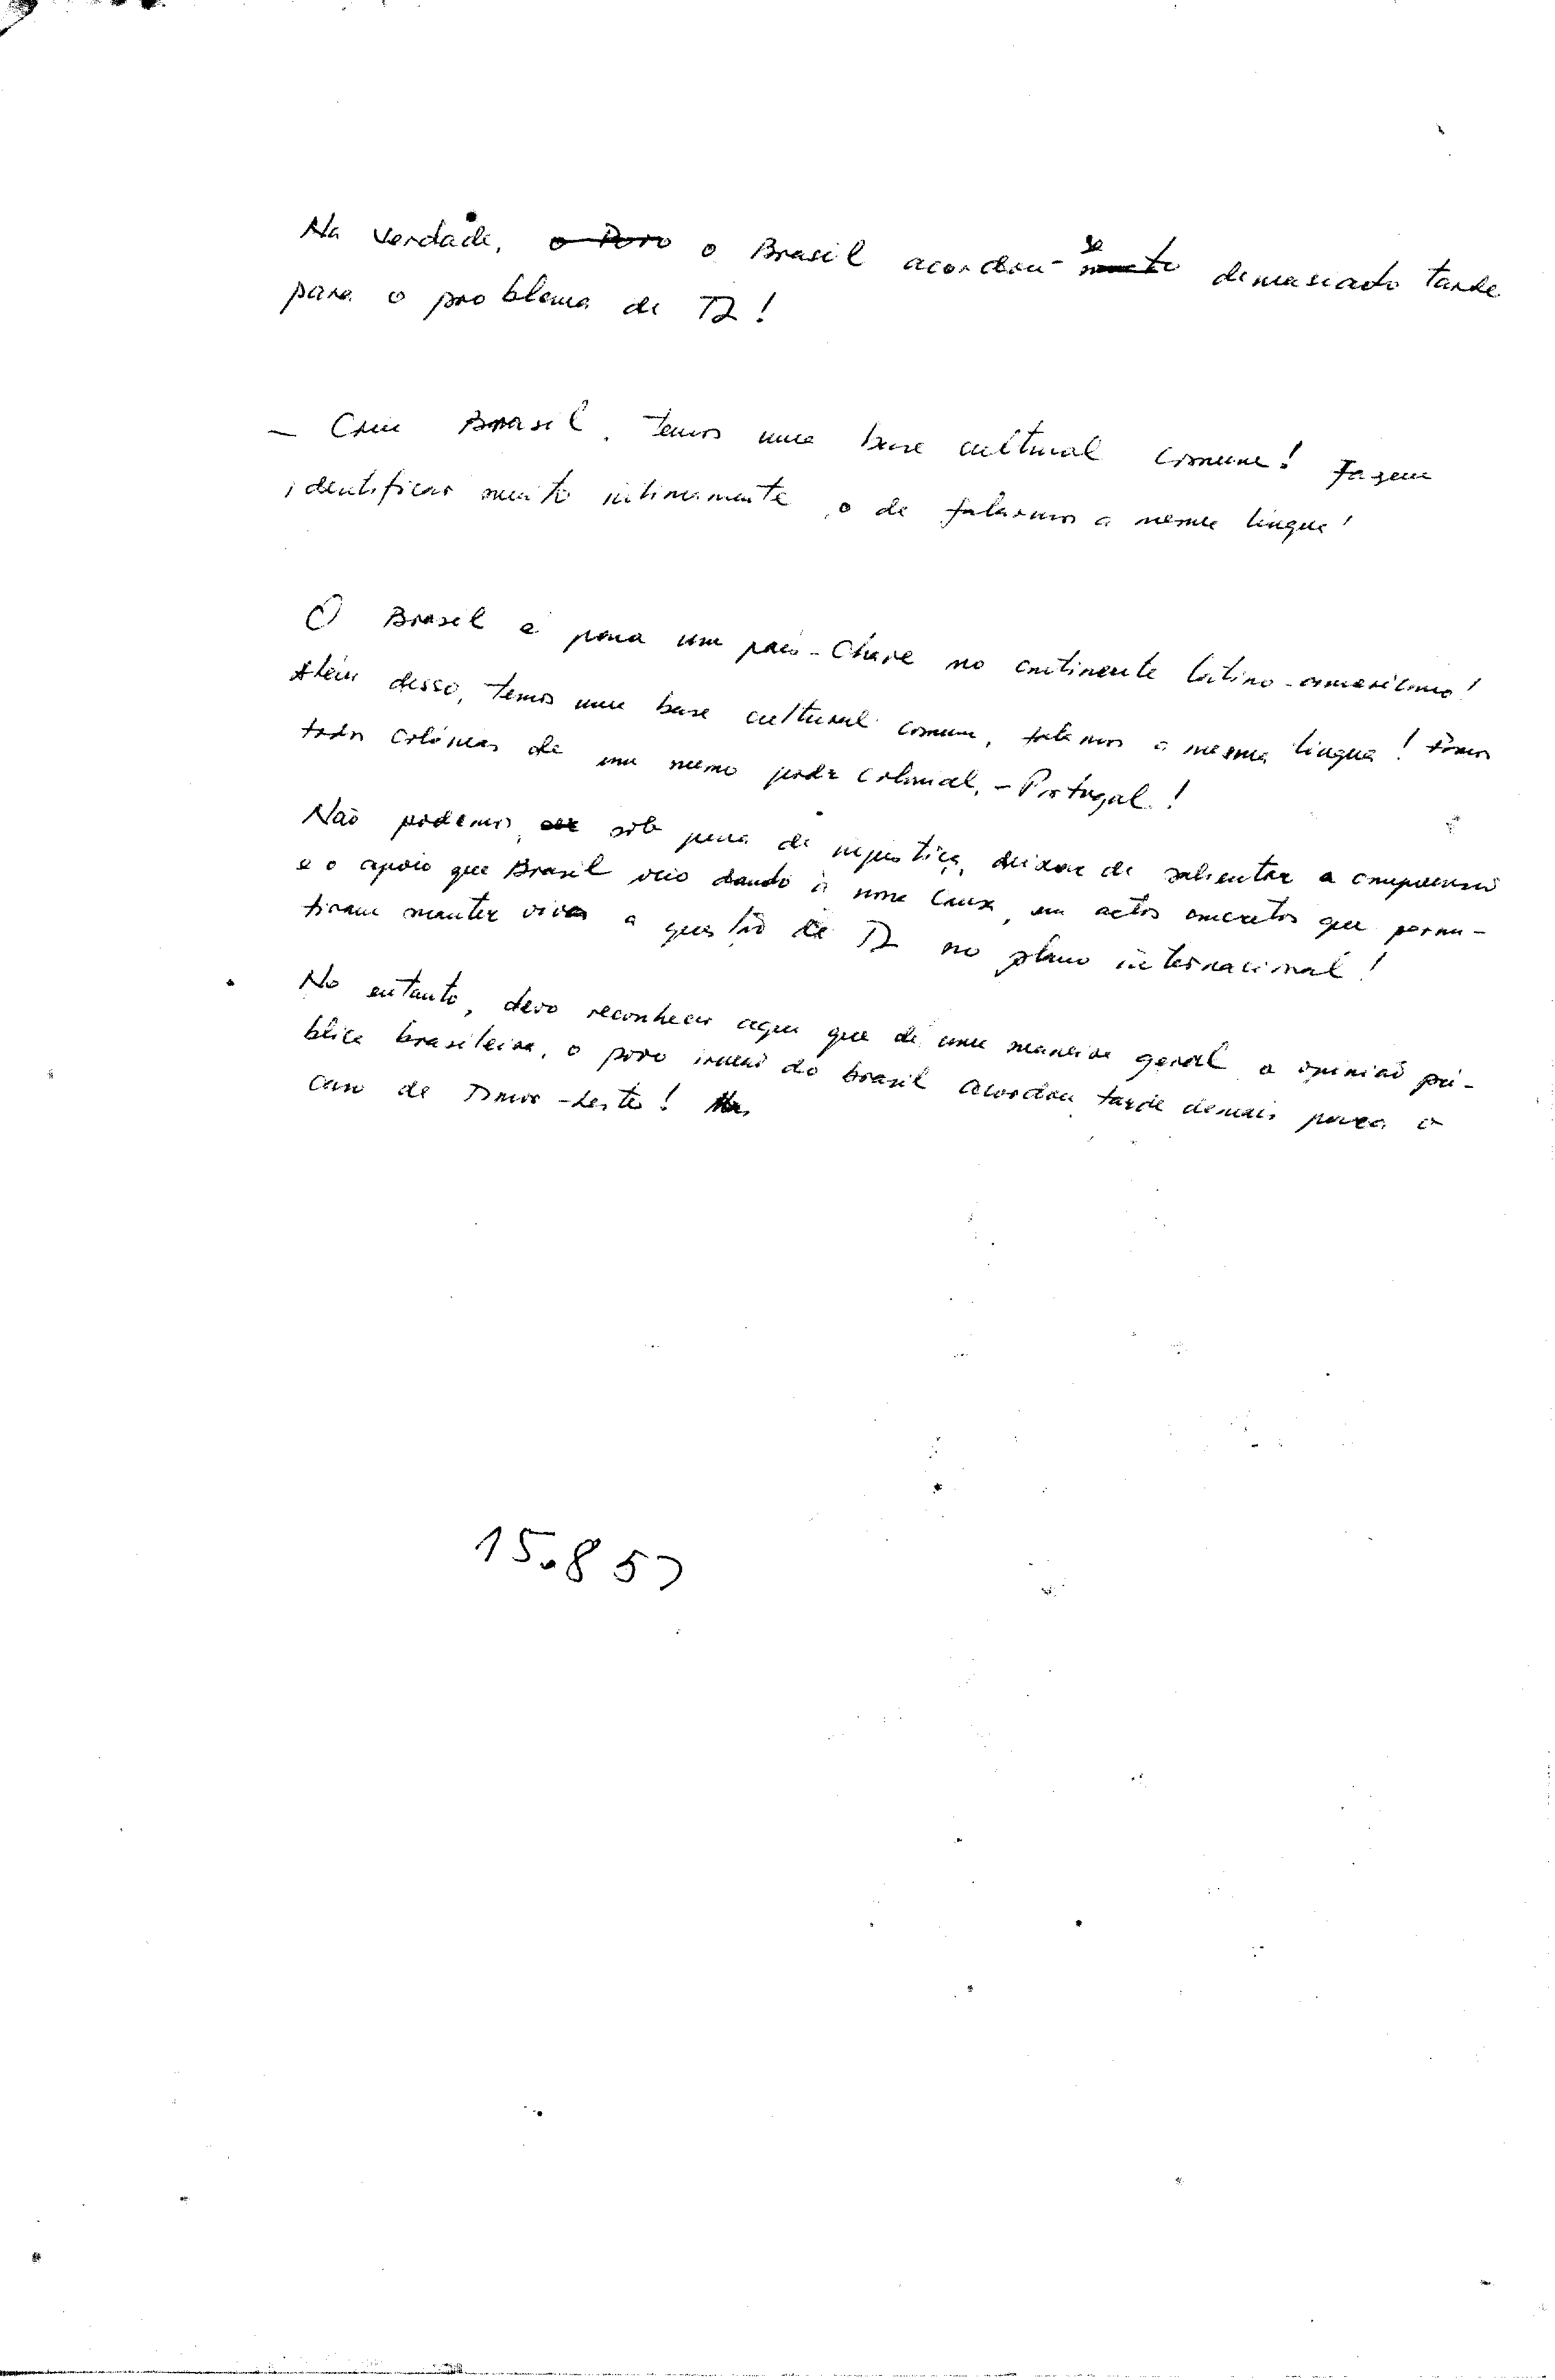 Na verdade, o Povo o Brasil acordou-se muito demasiado tarde
para o problema de TL!
- Com Brasil, temos uma base cultural comum! Fazem
identificar muito intimamente, o de falarmos a mesma lingua!
O Brasil é para um país-chave no continente latino-americano!
Além disso, temos uma base cultural comum, falamos a mesma lingua! Fomos
todos colónias de um mesmo poder colonial, - Portugal!
Não podemos, sob pena de injustiça, deixar de salientar a compreensão
e o apoio que Brasil veio dando à nossa causa, em actos concretos que permi-
tiram manter viva a questão de TL no plano internacional!
No entanto, devo reconhecer aqui que de uma maneira geral a opinião pú-
blica brasileira, o povo irmão do Brasil acordou tarde demais para o
caso de Timor-Leste! Mas
15.857